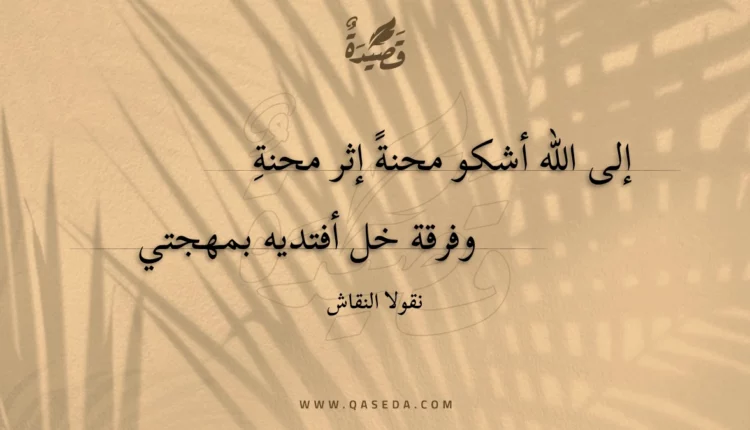 قَصِيْدَةٌ
إلى الله أشكو محنةً إثر محنةِ
وفرقة خل أفتديه بمهجتي
نقولا النقاش
WWW.QASEDA.COM